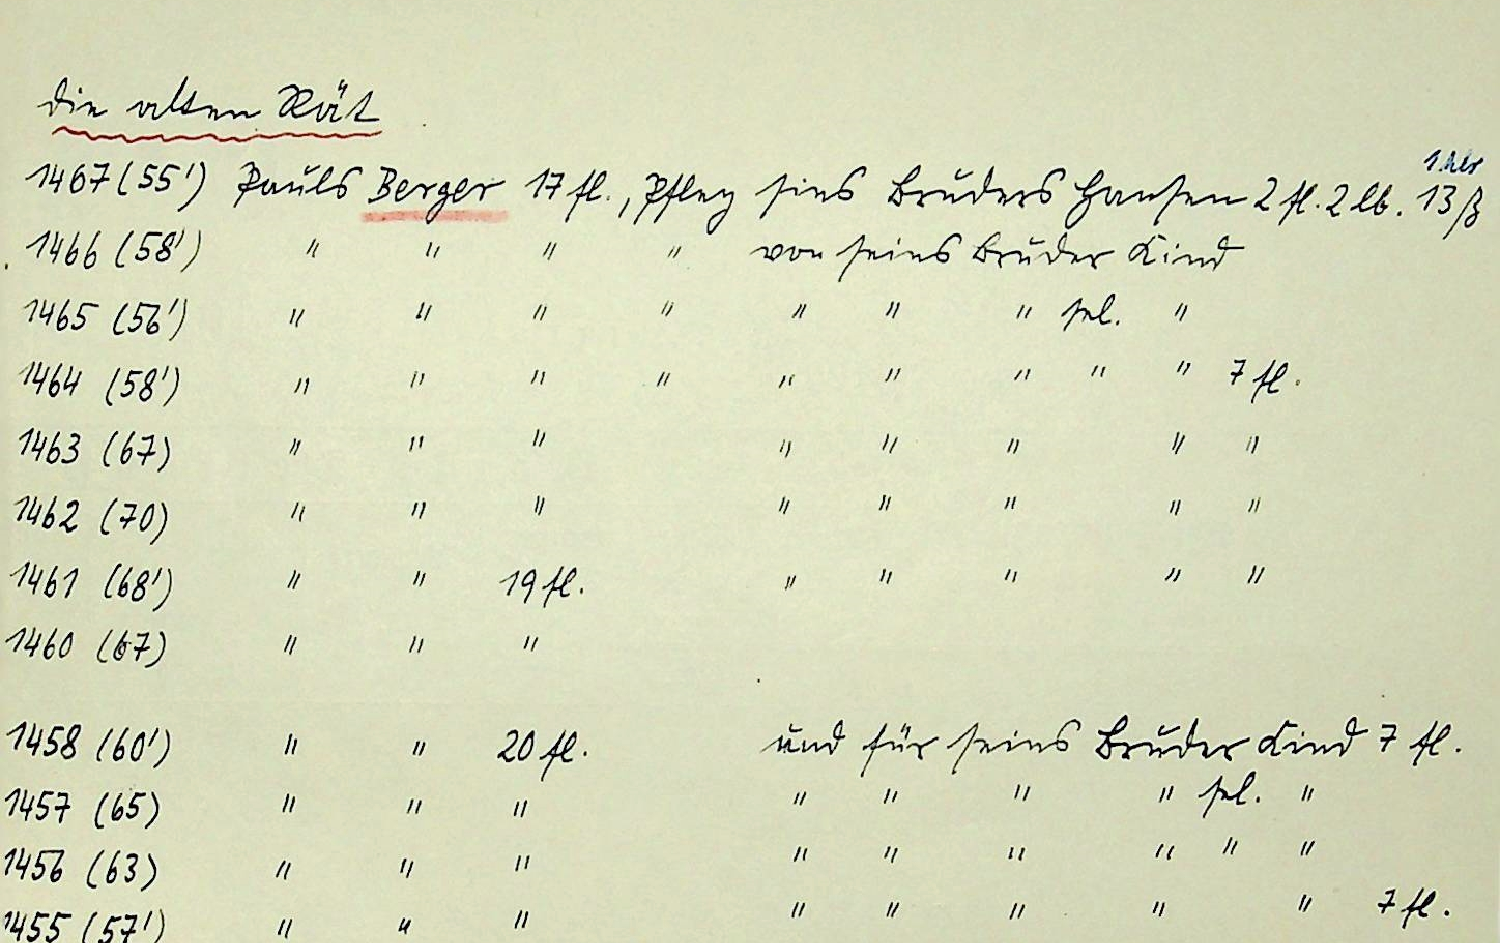 die alten Rät
1 hlr
1467 (55') Pauls Berger 17 fl., Pfleg sins Bruders Hansen 2 fl. 2 lb. 13 ß
1466 (58') " " " " von seins Bruder Kind
1465 (56') " " " " " " " sel. "
1464 (58') " " " " " " " " " 7 fl.
1463 (67) " " " " " " " "
1462 (70) " " " " " " " "
1461 (68') " " 19 fl. " " " " "
1460 (67) " " "
1458 (60') " " 20 fl. und für seins Bruder Kind 7 fl.
1457 (65) " " " " " " " sel. "
1456 (63) " " " " " " " " "
1455 (57') " " " " " " " " 7 fl.